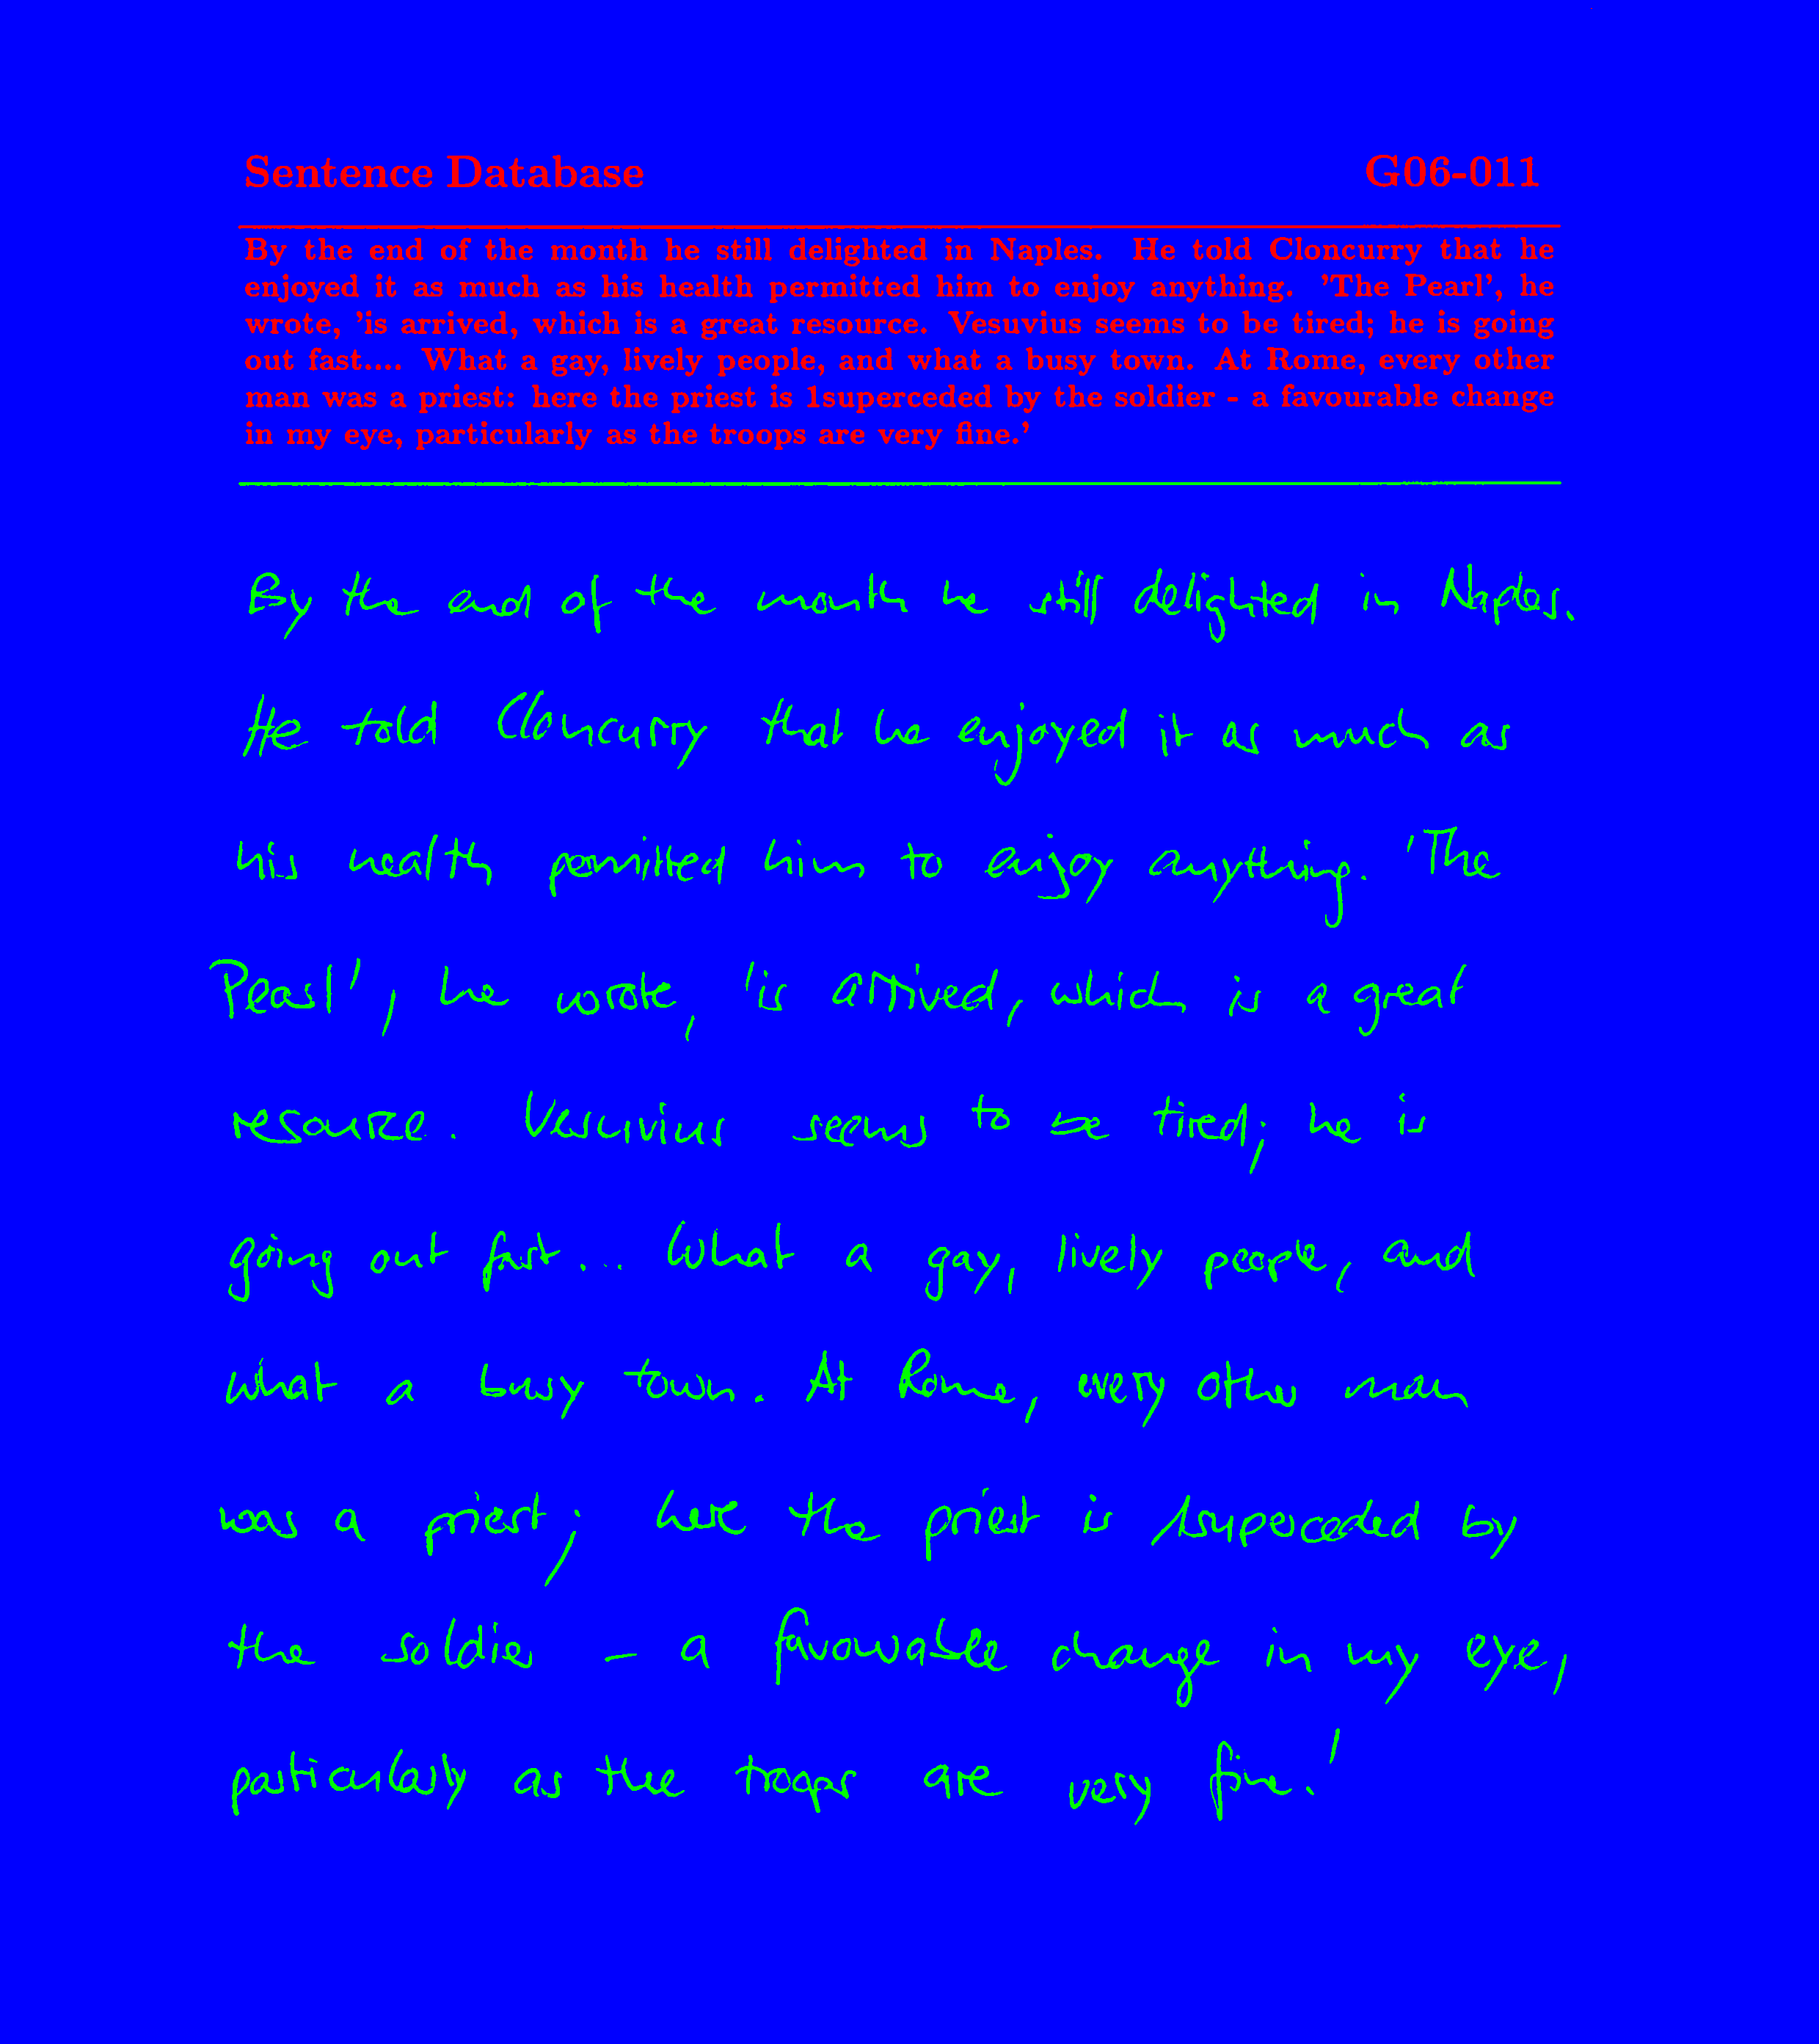 Sentence Database G06-011
By the end of the month he still delighted in Naples. He told Cloncurry that he
enjoyed it as much as his health permitted him to enjoy anything. 'The Pearl', he
wrote, 'is arrived, which is a great resource. Vesuvius seems to be tired; he is going
out fast.... What a gay, lively people, and what a busy town. At Rome, every other
man was a priest: here the priest is 1superceded by the soldier - a favourable change
in my eye, particularly as the troops are very fine.'
By the end of the month he still delighted in Naples.
He told Cloncurry that he enjoyed it as much as
his health permitted him to enjoy anything. 'The
Pearl', he wrote, 'is arrived, which is a great
resource. Vesuvius seems to be tired; he is
going out fast... What a gay, lively people, and
what a busy town. At Rome, every other man
was a priest; here the priest is 1superceded by
the soldier - a favourable change in my eye,
particularly as the troops are very fine.'